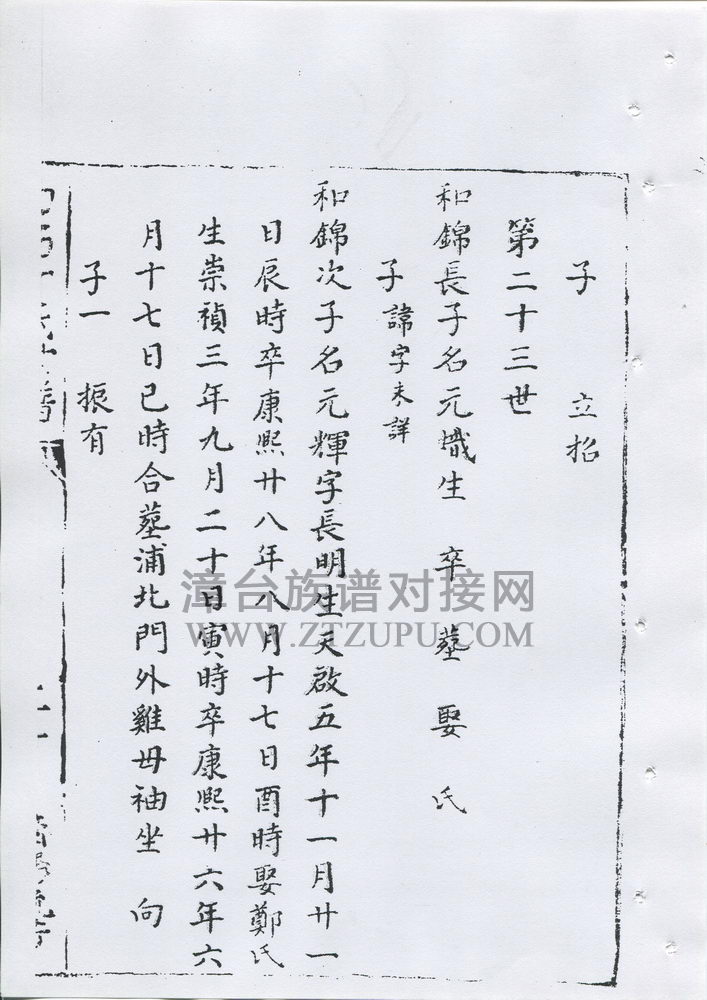 子 立招
第二十三世
和錦長子名元熾生 卒 墓 娶 氏
子 諱字未詳
和錦次子名元輝字長明生天啟五年十一月廿一
日辰時卒康熙廿八年八月十七日酉時娶鄭氏
生崇禎三年九月二十日寅時卒康熙廿六年六
月十七日巳時合墓浦北門外雞母袖坐 向
子一 振有
漳台族谱对接网
WWW.ZTZUPU.COM